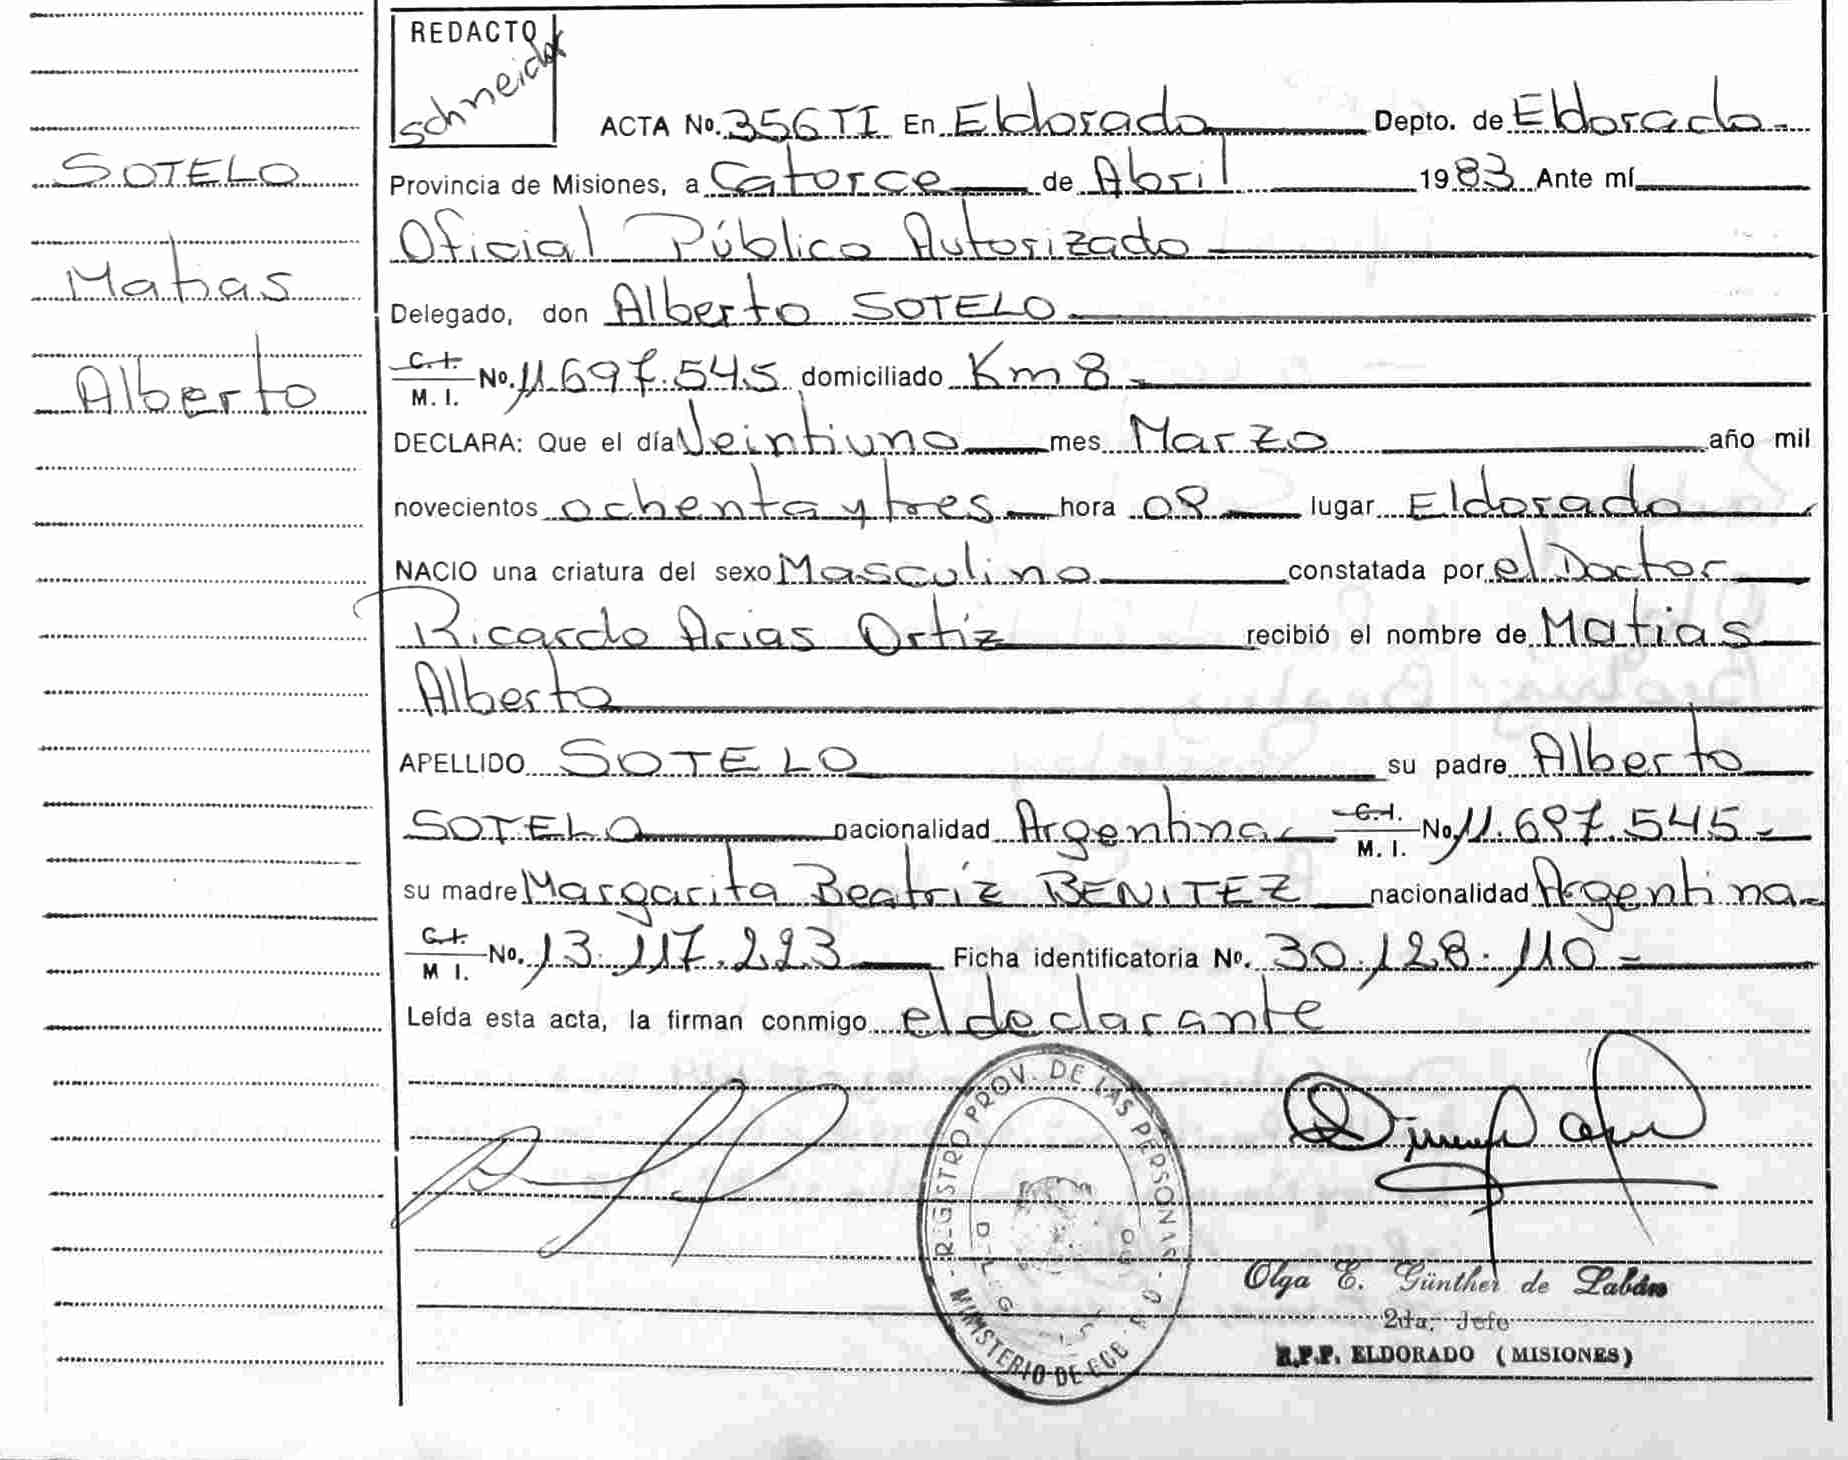 REDACTO
Schneider
SOTELO
Matias
Alberto
ACTA No. 356 TI En Eldorado Depto. de Eldorado
Provincia de Misiones, a Catorce de Abril 1983 Ante mí
Oficial Público Autorizado
Delegado, don Alberto SOTELO
C.I. M. I. No. 11.697.545 domiciliado Km 8
DECLARA: Que el día Veintiuno mes Marzo año mil
novecientos ochenta y tres hora 08 lugar Eldorado
NACIO una criatura del sexo Masculino constatada por el Doctor
Ricardo Arias Ortíz recibió el nombre de Matías
Alberto
APELLIDO SOTELO su padre Alberto
SOTELO nacionalidad Argentina C.I. M. I. No. 11.697.545
su madre Margarita Beatríz BENITEZ nacionalidad Argentina
C.I. M I. No. 13.117.223 Ficha identificatoria No. 30.128.110
Leída esta acta, la firman conmigo el declarante
REGISTRO PROV. DE LAS PERSONAS
MINISTERIO DE
Olga E. Günther de Labán
2da. Jefe
R.P.P. ELDORADO (MISIONES)